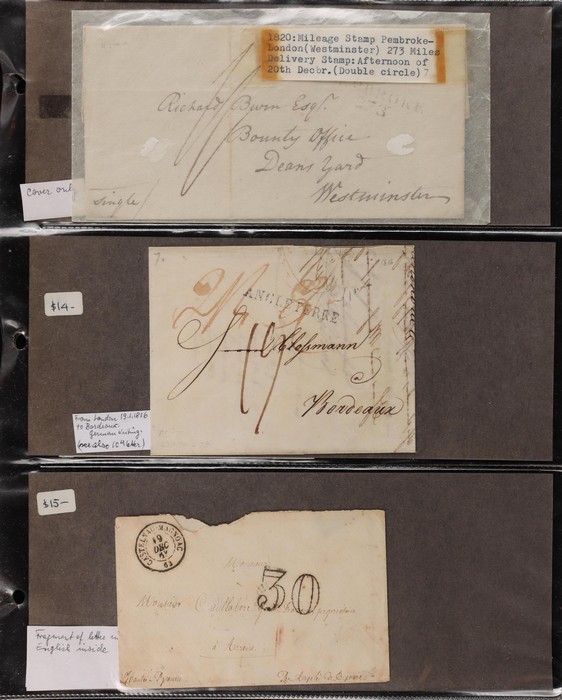 1820:Mileage Stamp Pembroke-
London(Westminster) 273 Miles
Delivery Stamp:Afternoon of
20th Decbr.(Double circle)
Richard Burn Esqr.
Bounty Office
Deans Yard
Westminster
Single
Cover only
$14-
ANGLETERRE
Klossmann
Bordeaux
From London 19.1.1816
to Bordeaux.
German writing.
(see also 10 Letter)
$15-
CASTELNAU-MAGNOAC
19
DEC
63
30
Monsieur
à
Fragment of letter in
English inside